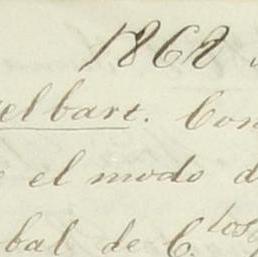 1868
elbart. Con
el modo d
bal de C.